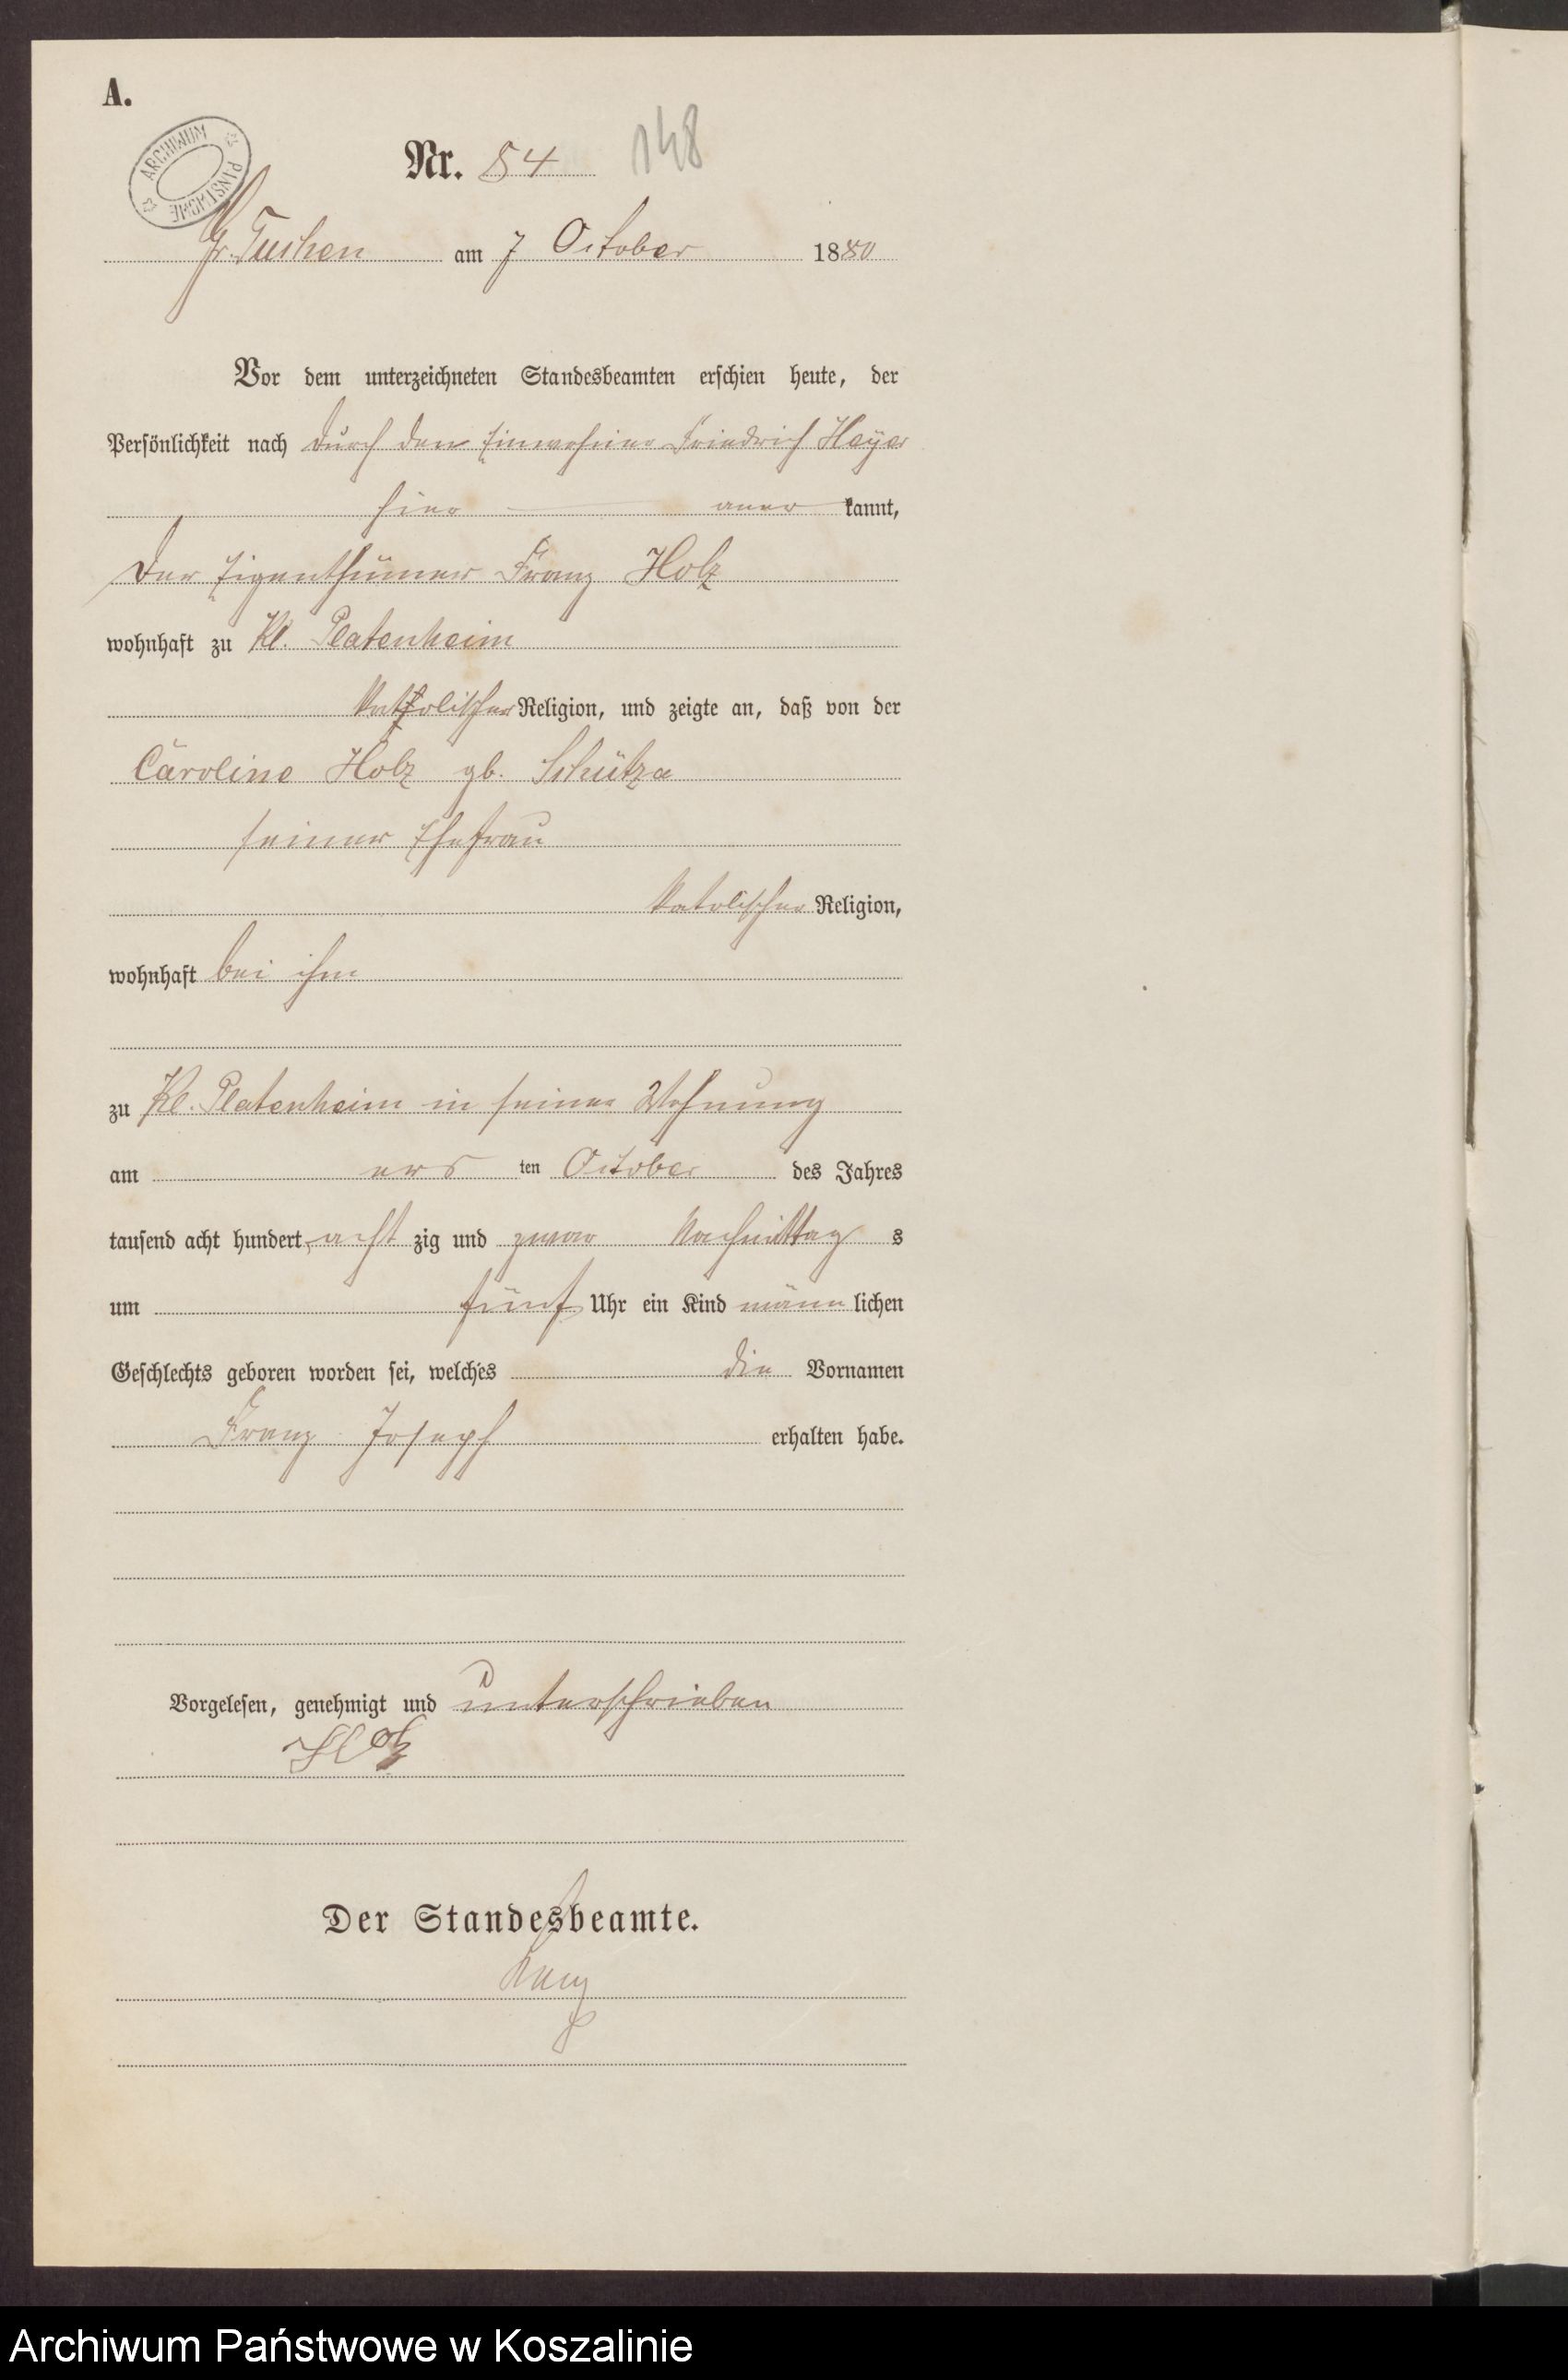 A.
ARCHIWUM PAŃSTWOWE
Nr. 54 148
Gr. Tuchen am 7 October 1880
Vor dem unterzeichneten Standesbeamten erschien heute, der
Persönlichkeit nach durch den Einwohner Friedrich Heyer
hier aner kannt,
der Eigenthümer Franz Holz
wohnhaft zu Kl. Platenheim
katholischer Religion, und zeigte an, daß von der
Caroline Holz gb. Schütza
seiner Ehefrau
katolischer Religion,
wohnhaft bei ihm
zu Kl. Platenheim in seiner Wohnung
am ers ten October des Jahres
tausend acht hundert acht zig und zwar Nachmittag s
um fünf Uhr ein Kind männ lichen
Geschlechts geboren worden sei, welches die Vornamen
Franz Joseph erhalten habe.
Vorgelesen, genehmigt und unterschrieben
Holz
Der Standesbeamte.
Archiwum Państwowe w Koszalinie